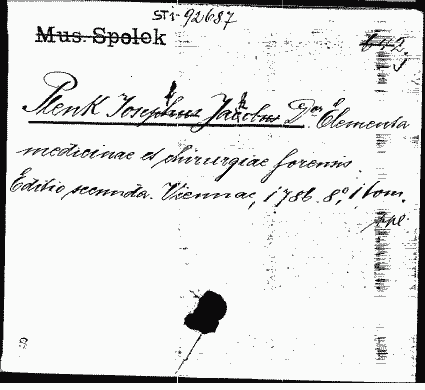 ST1-92687
Mus-Spolek
Plenk Josephus Jacobus D. Elementa
medicinae et chirurgiae forensis.
Editio secunda. Viennae, 1786. 8°, 1 tom.
ppl.